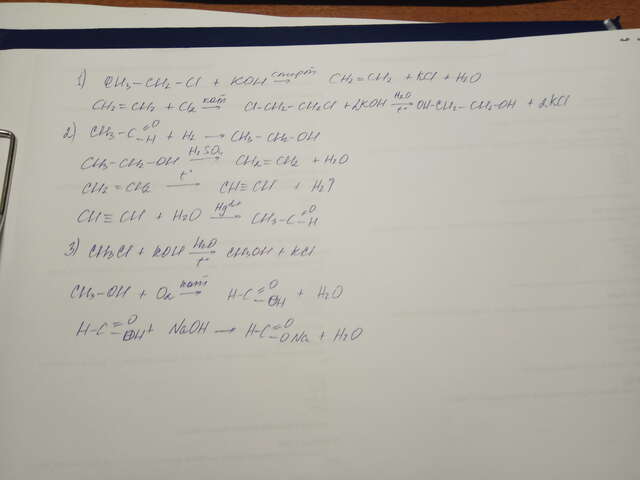 1) CH3-CH2-Cl + KOH спирт→ CH2=CH2 + KCl + H2O
CH2=CH2 + Cl2 кат→ Cl-CH2-CH2Cl + 2KOH H2O→t° OH-CH2-CH2-OH + 2KCl
2) CH3-C=O-H + H2 → CH3-CH2-OH
CH3-CH2-OH H2SO4→ CH2=CH2 + H2O
CH2=CH2 t°→ CH≡CH + H2↑
CH≡CH + H2O Hg2+→ CH3-C=O-H
3) CH3Cl + KOH H2O→t° CH3OH + KCl
CH3-OH + O2 кат→ H-C=O-OH + H2O
H-C=O-OH + NaOH → H-C=O-ONa + H2O